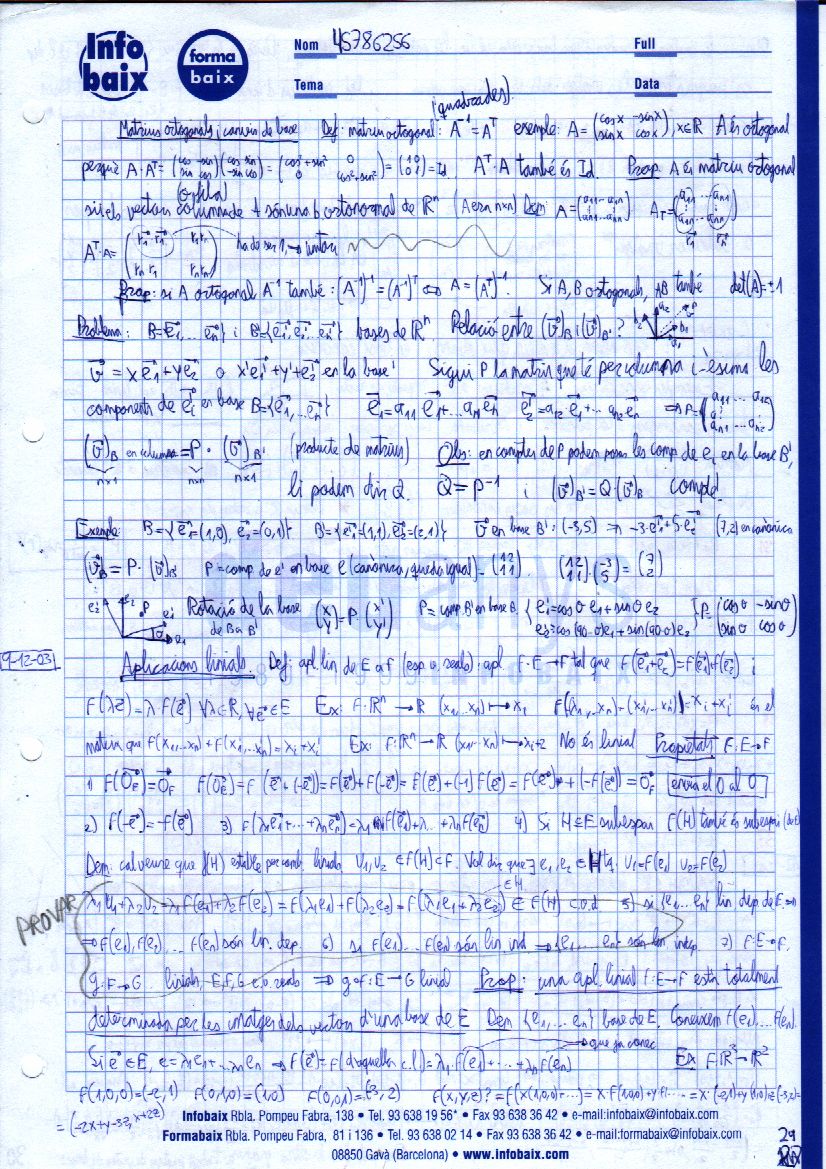 Info baix
forma baix
Nom 45786256 Full
Tema Data
(quadrades).
Matrius ortogonals i canvis de base Def: matriu ortogonal: A⁻¹ = Aᵀ exemple: A = (cosx -sinx / sinx cosx), x∈ℝ A és ortogonal
perquè A·Aᵀ = (cos -sin / sin cos)(cos sin / -sin cos) = (cos²+sin² 0 / 0 cos²+sin²) = (1 0 / 0 1) = Id. Aᵀ·A també és Id. Prop A és matriu ortogonal
(o fila)
si els vectors columna de A són una b. ortonormal de ℝⁿ (A és n×n) Dem: A = (a11 ... a1n / an1 ... ann) Aᵀ =
Aᵀ·A = ha de ser 1
Prop: si A ortogonal, A⁻¹ també: (A⁻¹)⁻¹ = (A⁻¹)ᵀ ⇔ A = (Aᵀ)⁻¹. Si A, B ortogonals, AB també det(A) = ±1
Problema: B = {e1, ... en} i B' = {e1', e2' ... en'} bases de ℝⁿ. Relació entre (v)B i (v)B'?
v = x e1 + y e2 o x'e1' + y'e2' en la base' Sigui P la matriu que té per columna i-èsima les
components de ei' en base B = {e1, ... en} e1' = a11 e1 + ... an1 en e2' = a12 e1 + ... an2 en ⇒ P =
(v)B en columna = P · (v)B' (producte de matrius) Obs: en comptes de P podem posar les comp de ei en la base B',
n×1 n×n n×1 li podem dir Q. Q = P⁻¹ i (v)B' = Q·(v)B complé.
Exemple: B = {e1 = (1,0), e2 = (0,1)} B' = {e1' = (1,1), e2' = (2,1)} v en base B': (-3,5) ⇒ -3·e1' + 5·e2' (7,2) en canònica
(v)B = P·(v)B' P = comp de e' en base e (canònica, queda igual) = (1 2 / 1 1) (1 2 / 1 1)·(-3 / 5) = (7 / 2)
Rotació de la base (x / y) = P (x' / y') P = comp B' en base B { e1' = cosθ e1 + sinθ e2
de B a B' e2' = cos(90-θ)e1 + sin(90-θ)e2 P = (cosθ -sinθ / sinθ cosθ)
9-12-03 Aplicacions linials. Def: apl. lin de E a F (esp v. reals): apl. F: E→F tal que F(e1+e2) = F(e1)+F(e2) i
F(λe) = λ·F(e) ∀λ∈ℝ, ∀e∈E Ex: F: ℝⁿ → ℝ (x1...xn) ↦ x1 F((x1...xn)+(x1'...xn')) = xi+xi' és el
mateix que F(x1...xn)+F(x1'...xn') = xi+xi' Ex: F: ℝⁿ → ℝ (x1...xn) ↦ xi+2 No és linial Propietats F: E→F
1) F(0E) = 0F F(0E) = F(e+(-e)) = F(e)+F(-e) = F(e)+(-1)F(e) = F(e)+(-F(e)) = 0F envia el 0 al 0
2) F(-e) = -F(e) 3) F(λ1e1+...+λnen) = λ1F(e1)+...+λnF(en) 4) Si H⊆E subespai F(H) també és subespai
Dem: cal veure que F(H) estable per comb. linials V1, V2 ∈ F(H)⊂F. Vol dir que ∃ e1, e2 ∈ H tq. V1 = F(e1) V2 = F(e2)
∈H
PROVAR λ1V1+λ2V2 = λ1F(e1)+λ2F(e2) = F(λ1e1)+F(λ2e2) = F(λ1e1+λ2e2) ∈ F(H) c.q.d 5) si {e1...en} lin dep de E ⇒
⇒ F(e1), F(e2), ... F(en) són lin. dep. 6) si F(e1)...F(en) són lin ind ⇒ {e1, ... en} són lin indep 7) F: E→F,
g: F→G linials, E, F, G e.v. reals ⇒ g∘F: E→G linial Prop: una apl. linial F: E→F està totalment
determinada per les imatges dels vectors d'una base de E Dem {e1, ... en} base de E. Coneixem F(e1)...F(en).
que ja conec
Si e∈E, e = λ1e1+...λnen ⇒ F(e) = F(d'aquella c.l.) = λ1·F(e1)+...+λnF(en) Ex F: ℝ³→ℝ²
F(1,0,0) = (-2,1) F(0,1,0) = (1,0) F(0,0,1) = (-3,2) F(x,y,z)? = F(x(1,0,0)+...) = x·F(1,0,0)+yF(... = x·(-2,1)+y(1,0)+z(-3,2) =
= (-2x+y-3z, x+2z)
Infobaix Rbla. Pompeu Fabra, 138 • Tel. 93 638 19 56* • Fax 93 638 36 42 • e-mail:infobaix@infobaix.com
Formabaix Rbla. Pompeu Fabra, 81 i 136 • Tel. 93 638 02 14 • Fax 93 638 36 42 • e-mail:formabaix@infobaix.com
08850 Gavà (Barcelona) • www.infobaix.com
29